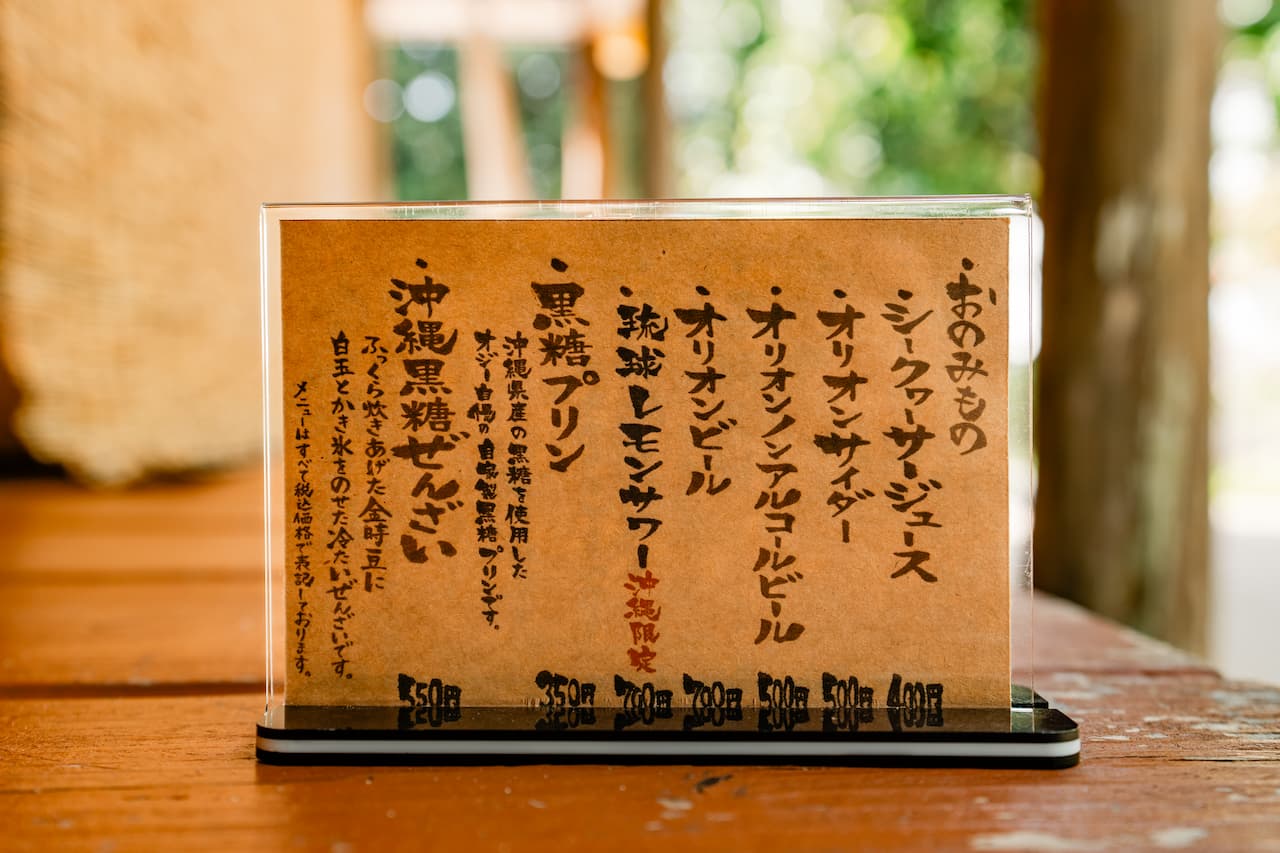 ・おのみもの
・シークヮーサージュース 400円
・オリオンサイダー 500円
・オリオンノンアルコールビール 500円
・オリオンビール 700円
・琉球レモンサワー 沖縄限定 700円
・黒糖プリン 350円
沖縄県産の黒糖を使用した
オジー自慢の自家製黒糖プリンです。
・沖縄黒糖ぜんざい 550円
ふっくら炊きあげた金時豆に
白玉とかき氷をのせた冷たいぜんざいです。
メニューはすべて税込価格で表記しております。